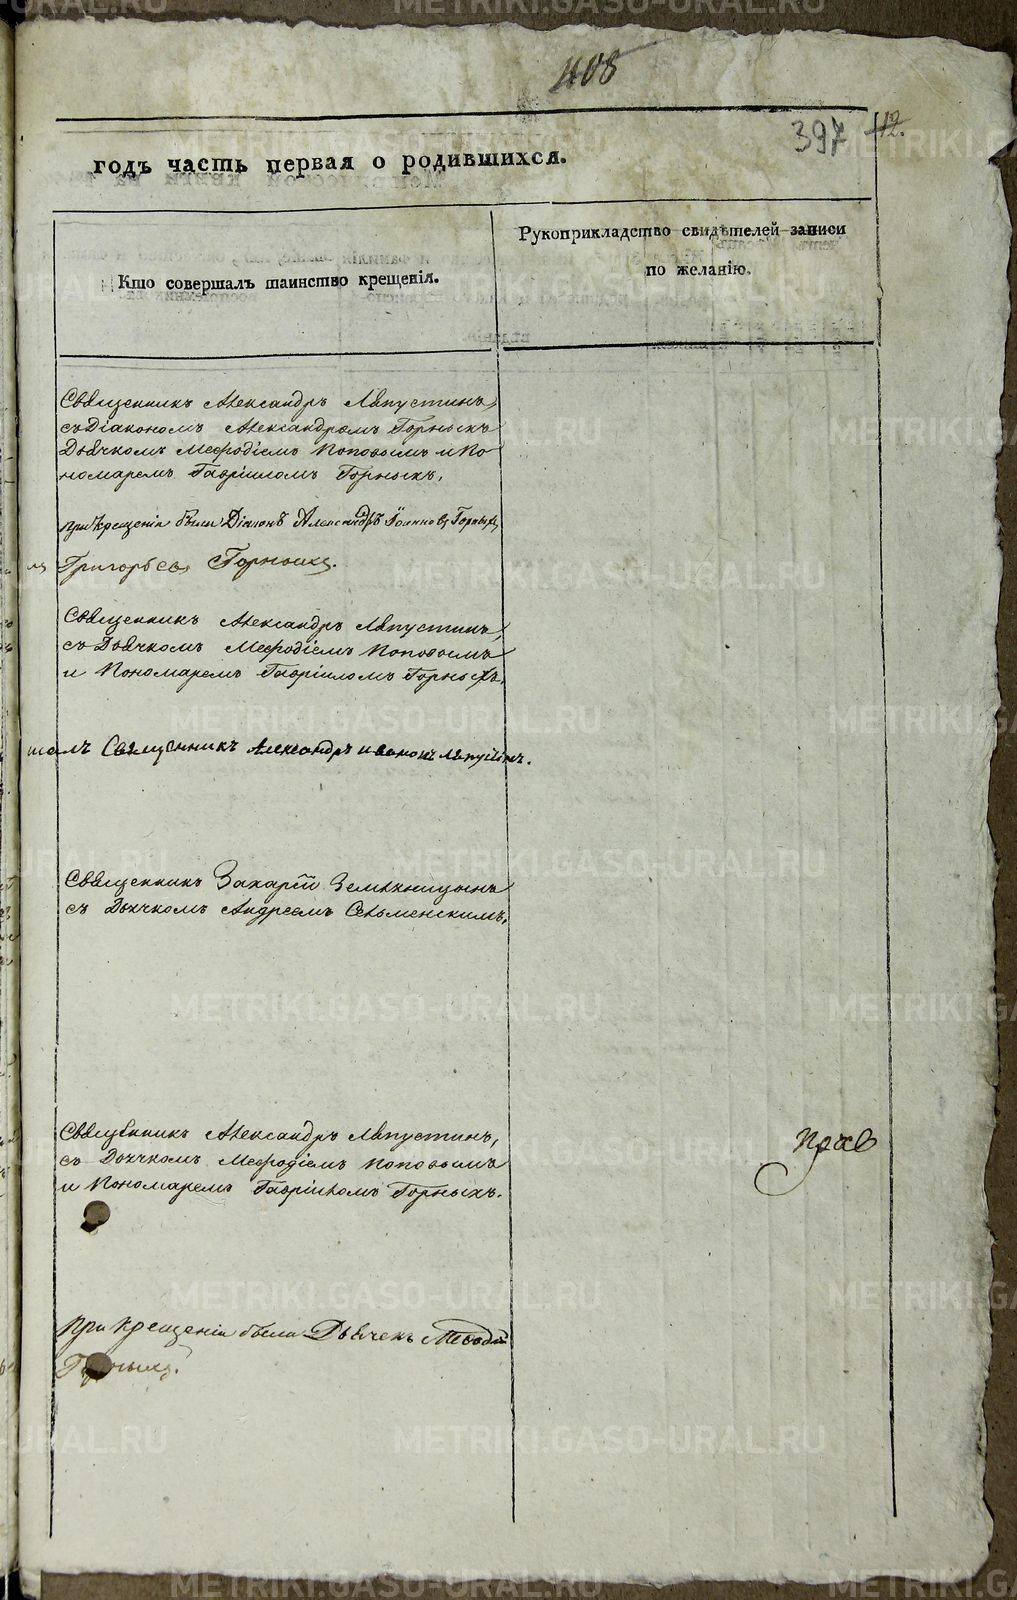 408
397 12.
годъ часть первая о родившихся.
Кто совершалъ таинство крещенія.
Рукоприкладство свидѣтелей записи
по желанію.
Священникъ Александръ Ляпустинъ,
съ Діакономъ Александромъ Горныхъ
Дьячкомъ Меѳодіемъ Поповымъ и По
номаремъ Гавріиломъ Горныхъ,
при крещеніи были Діаконъ Александръ Іоанновъ Горныхъ,
Григорьевъ Горныхъ.
Священникъ Александръ Ляпустинъ,
съ Дьячкомъ Меѳодіемъ Поповымъ
и Пономаремъ Гавріиломъ Горныхъ.
шалъ Священникъ Александръ Ляпустинъ.
Священникъ Захарій Земляницынъ
съ Дьячкомъ Андреемъ Сельменскимъ.
Священникъ Александръ Ляпустинъ,
съ Дьячкомъ Меѳодіемъ Поповымъ
и Пономаремъ Гавріиломъ Горныхъ.
при крещеніи были Дьячекъ Меѳодій
METRIKI.GASO-URAL.RU